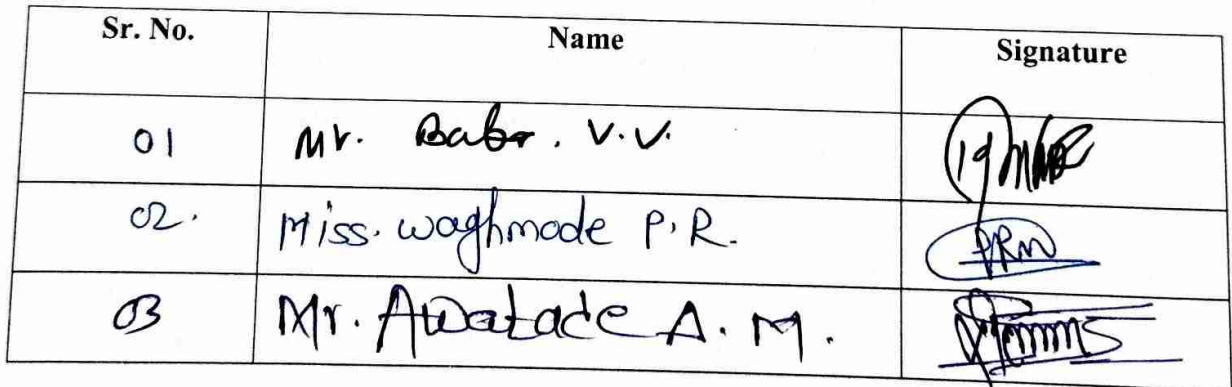 Sr. No. Name Signature
01 Mr. Babar. V.V.
02. Miss. waghmode P.R.
03 Mr. Awatade A. M.